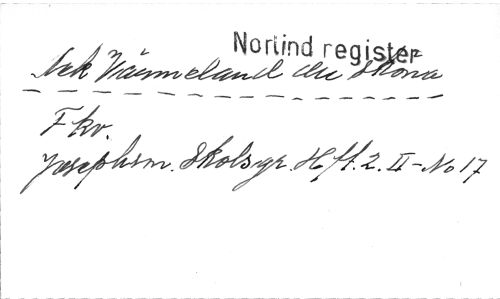 Norlind register
Ack Värmeland du sköna
F kv.
Josephson. Skolsgr. Hft. 2. II - No 17